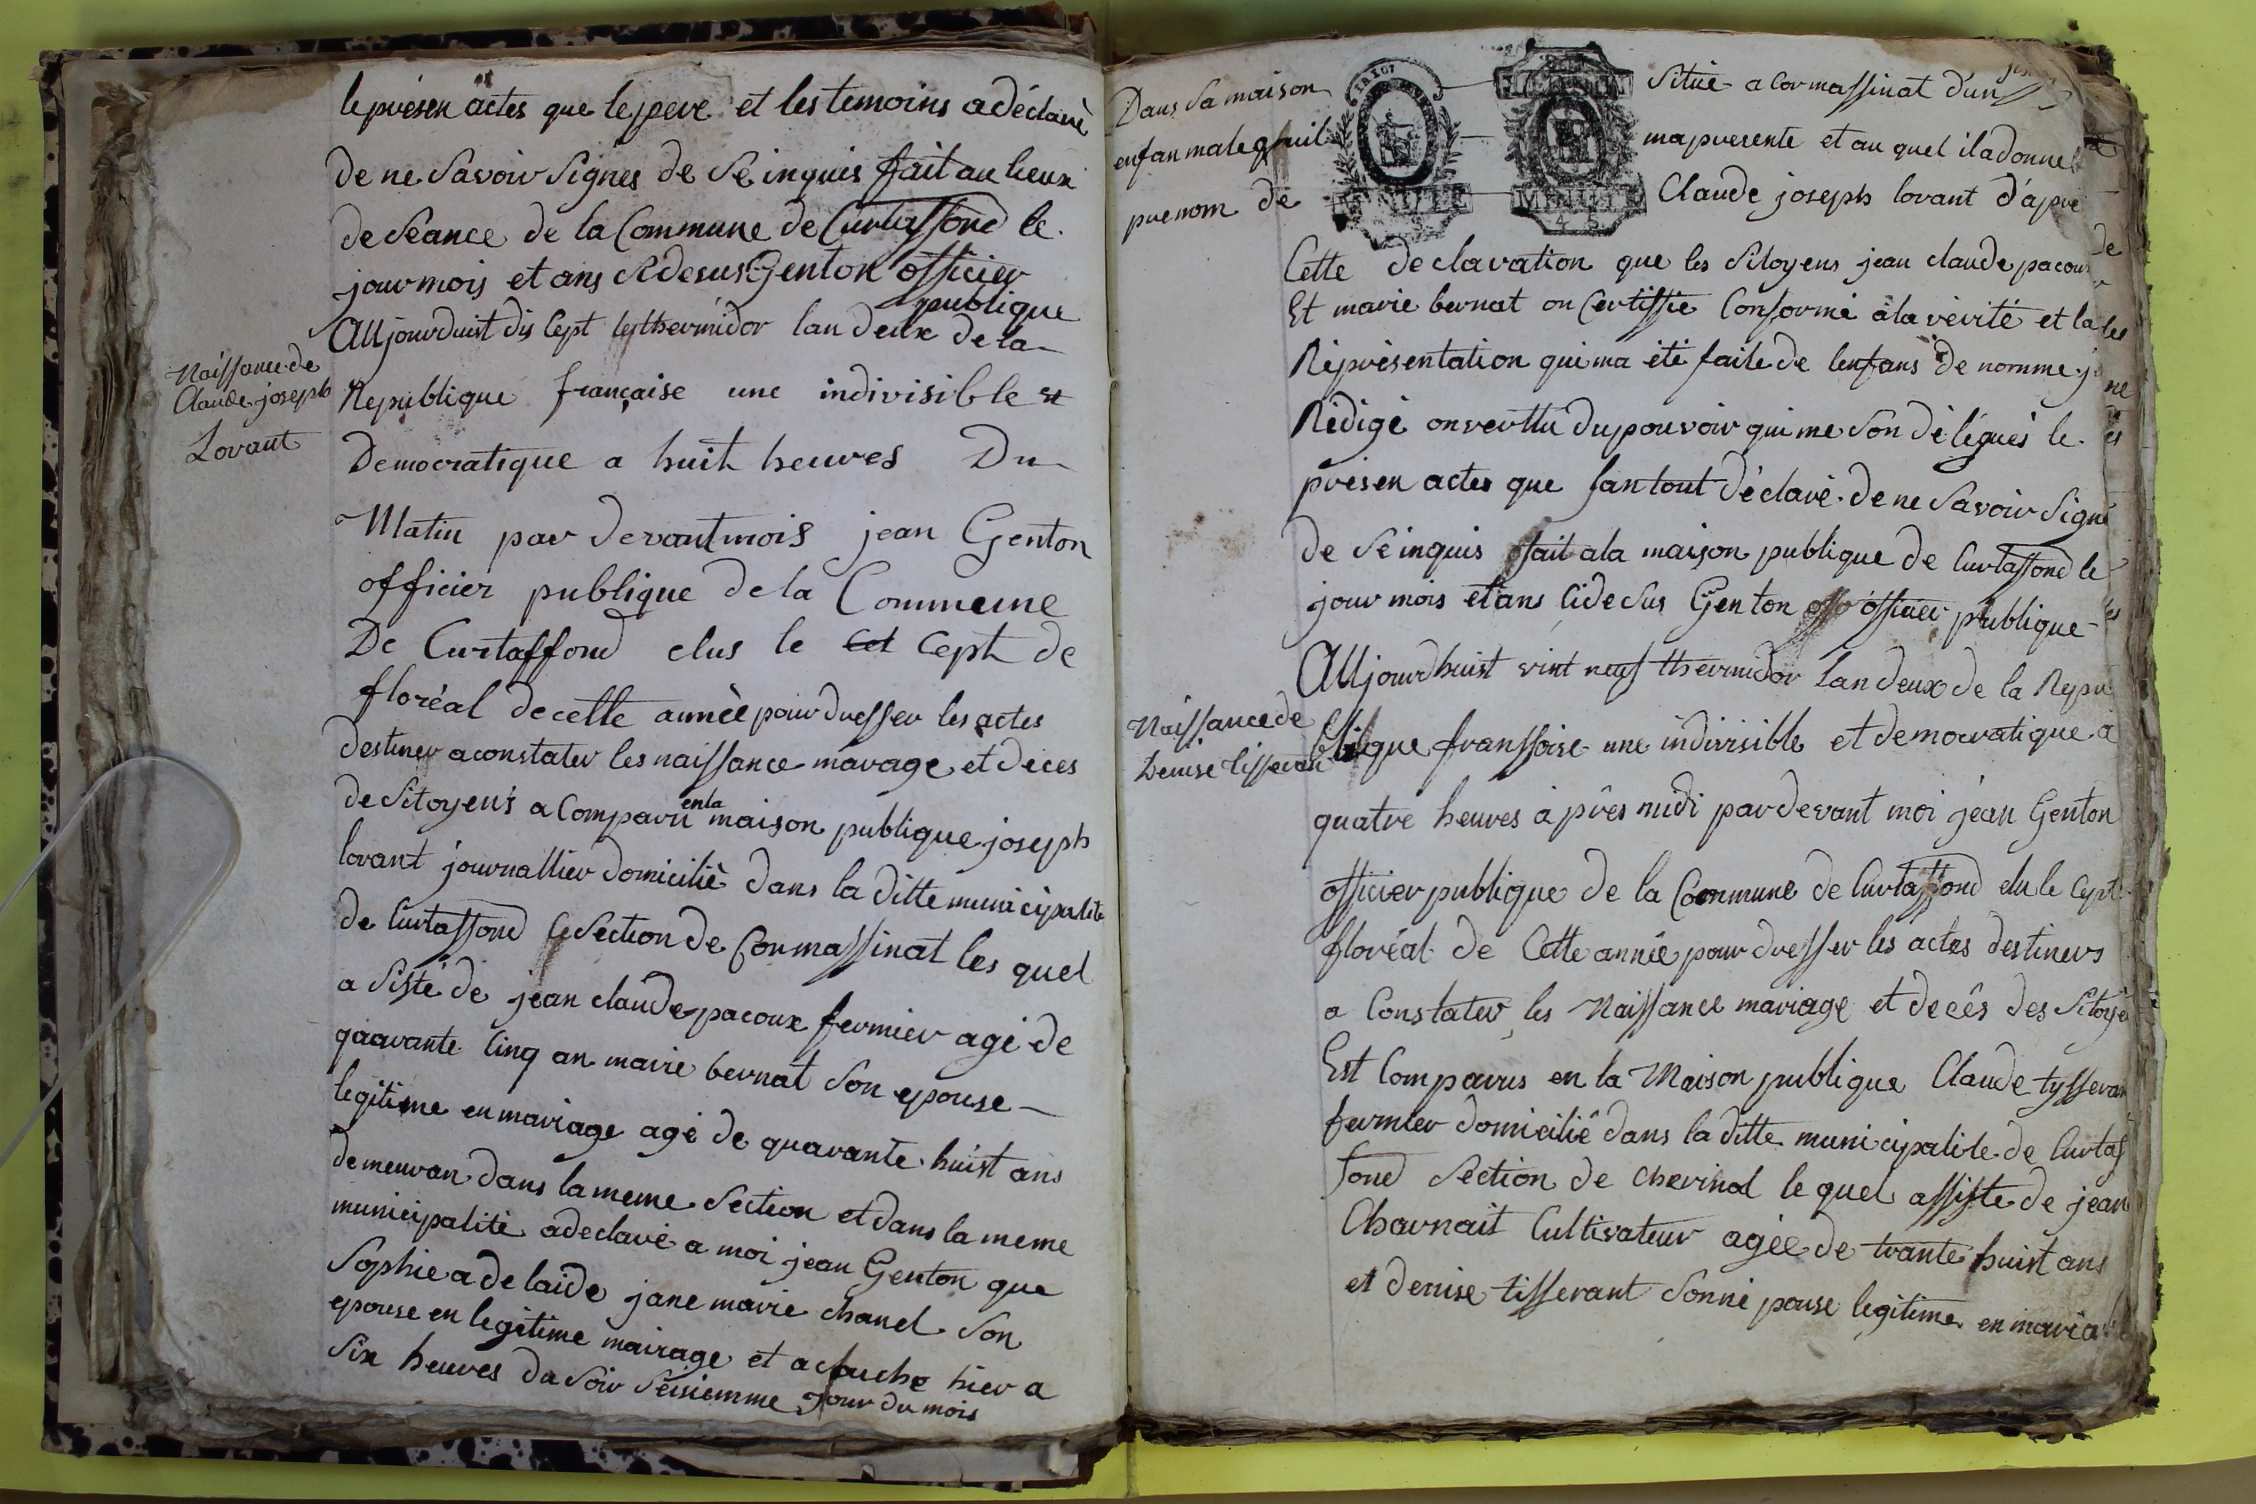 le présen actes que le pere et les temoins a déclaré
de ne Savoir Signes de Se inquis fait au lieux
de Séance de la Commune de Curtaffond le
jour mois et ans Sidesus Genton officier
publique
Naissance de
Claude joseph
Lorant
Aujourduit dis Cept thermidor lan deux de la
Republique française une indivisible et
Democratique a huit heures Du
Matin par devant mois jean Genton
officier publique de la Commune
De Curtaffond elus le Cept de
floréal de cette année pour dresser les actes
destiner a constater les naissance marage et déces
de Sitoyens a Comparu en la maison publique joseph
lorant journallier domicilié dans la ditte municipalité
de Curtaffond Section de Cormassinat les quel
a Sisté de jean claude pacoux fermier agé de
qaarante Cinq an marie bernat Son epouse
legitime en mariage agé de quarante huist ans
demeuran dans la meme Section et dans la meme
municipalité a declaré a moi jean Genton que
Sophie a de laide jane marie chanel Son
epouse en legitime mairage et acouche hier a
Six heures du Soir Seisiemme jour du mois
Dans Sa maison Situé a Cormassinat d'un
enfan male quil ma presente et au quel il a donne
prenom de Claude joseph lorant d'apré
Cette declaration que les Sitoyens jean claude pacoux
Et marie bernat on Certiffie Conforme à la vérité et la
Réprésentation qui ma été faite de lenfans de nomme j
Rédigé on verttu du pouvoir qui me Son délégués le
présen actes que fantout déclaré de ne Savoir Signé
de Se inquis ffait a la maison publique de Curtaffond le
jour mois et ans Cidesus Genton officier publique
Naissance de
Denise tisseran
Aujourdhuist vint neuf thermidor Lan deux de la Repu
blique franssoise une indivisible et democratique a
quatre heures à prês midi par devant moi jéan Genton
officier publique de la Commune de Curtaffond elu le Cept
floréal de Cette année pour dresser les actes destiners
a Constater les Naissance mariage et decês des Sitoye
Est Comparus en la Maison publique Claude tysseran
fermier domicilié dans la ditte municipalite de Curtaf
fond Section de Chevinol le quel assiste de jean
Charnait Cultivateur agée de trante huist ans
et denise tisserant Sonne pouse legitime en maria